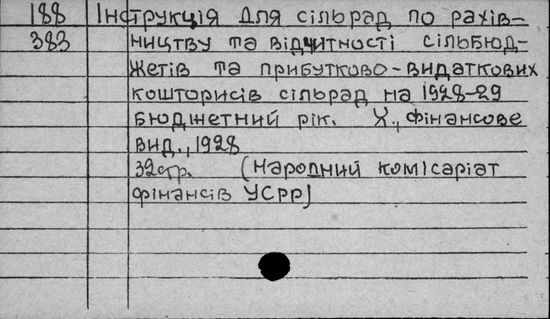 188 Інструкція для сільрад по рахів-
383 ництву та відчитності сільбюд-
жетів та прибутково-видаткових
кошторисів сільрад на 1928-29
бюджетний рік. Х., фінансове
вид., 1928
32стр. (Народний комісаріат
фінансів УСРР)